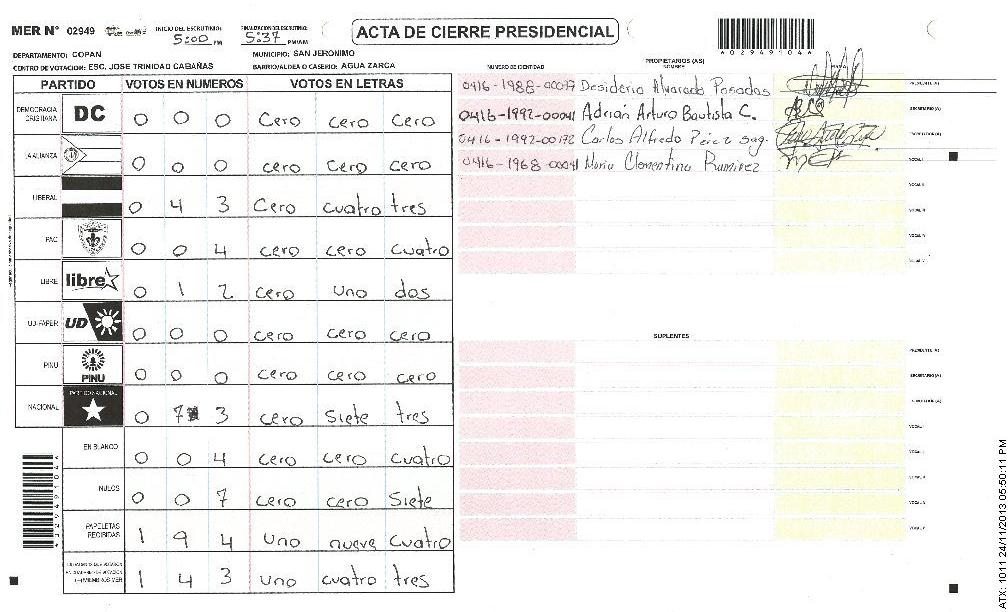 MER Nº 02949
INICIO DEL ESCRUTINIO: 5:00 PM
FINALIZACION DEL ESCRUTINIO: 5:37 PM/AM
ACTA DE CIERRE PRESIDENCIAL
*029491044*
DEPARTAMENTO: COPAN
MUNICIPIO: SAN JERONIMO
CENTRO DE VOTACION: ESC. JOSE TRINIDAD CABAÑAS
BARRIO/ALDEA O CASERIO: AGUA ZARCA
PARTIDO VOTOS EN NUMEROS VOTOS EN LETRAS
DEMOCRACIA CRISTIANA DC 0 0 0 cero cero cero
LA ALIANZA 0 0 0 cero cero cero
LIBERAL 0 4 3 Cero cuatro tres
PAC 0 0 4 cero cero cuatro
LIBRE libre 0 1 2 cero uno dos
UD-FAPER UD 0 0 0 cero cero cero
PINU PINU 0 0 0 cero cero cero
NACIONAL PARTIDO NACIONAL 0 7 3 cero Siete tres
EN BLANCO 0 0 4 cero cero cuatro
NULOS 0 0 7 cero cero Siete
PAPELETAS RECIBIDAS 1 9 4 uno nueve cuatro
MIEMBROS MER 1 4 3 uno cuatro tres
PROPIETARIOS (AS)
NUMERO DE IDENTIDAD NOMBRE
Desiderio Alvarado Posadas PRESIDENTE (A)
0416-1992-00041 Adrián Arturo Bautista C. SECRETARIO (A)
0416-1992-00172 Carlos Alfredo Pérez Sag. ESCRUTADOR (A)
0416-1968-00041 Maria Clementina Ramirez VOCAL I
VOCAL II
VOCAL III
VOCAL IV
VOCAL V
SUPLENTES
PRESIDENTE (A)
SECRETARIO (A)
ESCRUTADOR (A)
VOCAL I
VOCAL II
VOCAL III
VOCAL IV
VOCAL V
ATX: 1011 24/11/2013 05:50:11 PM